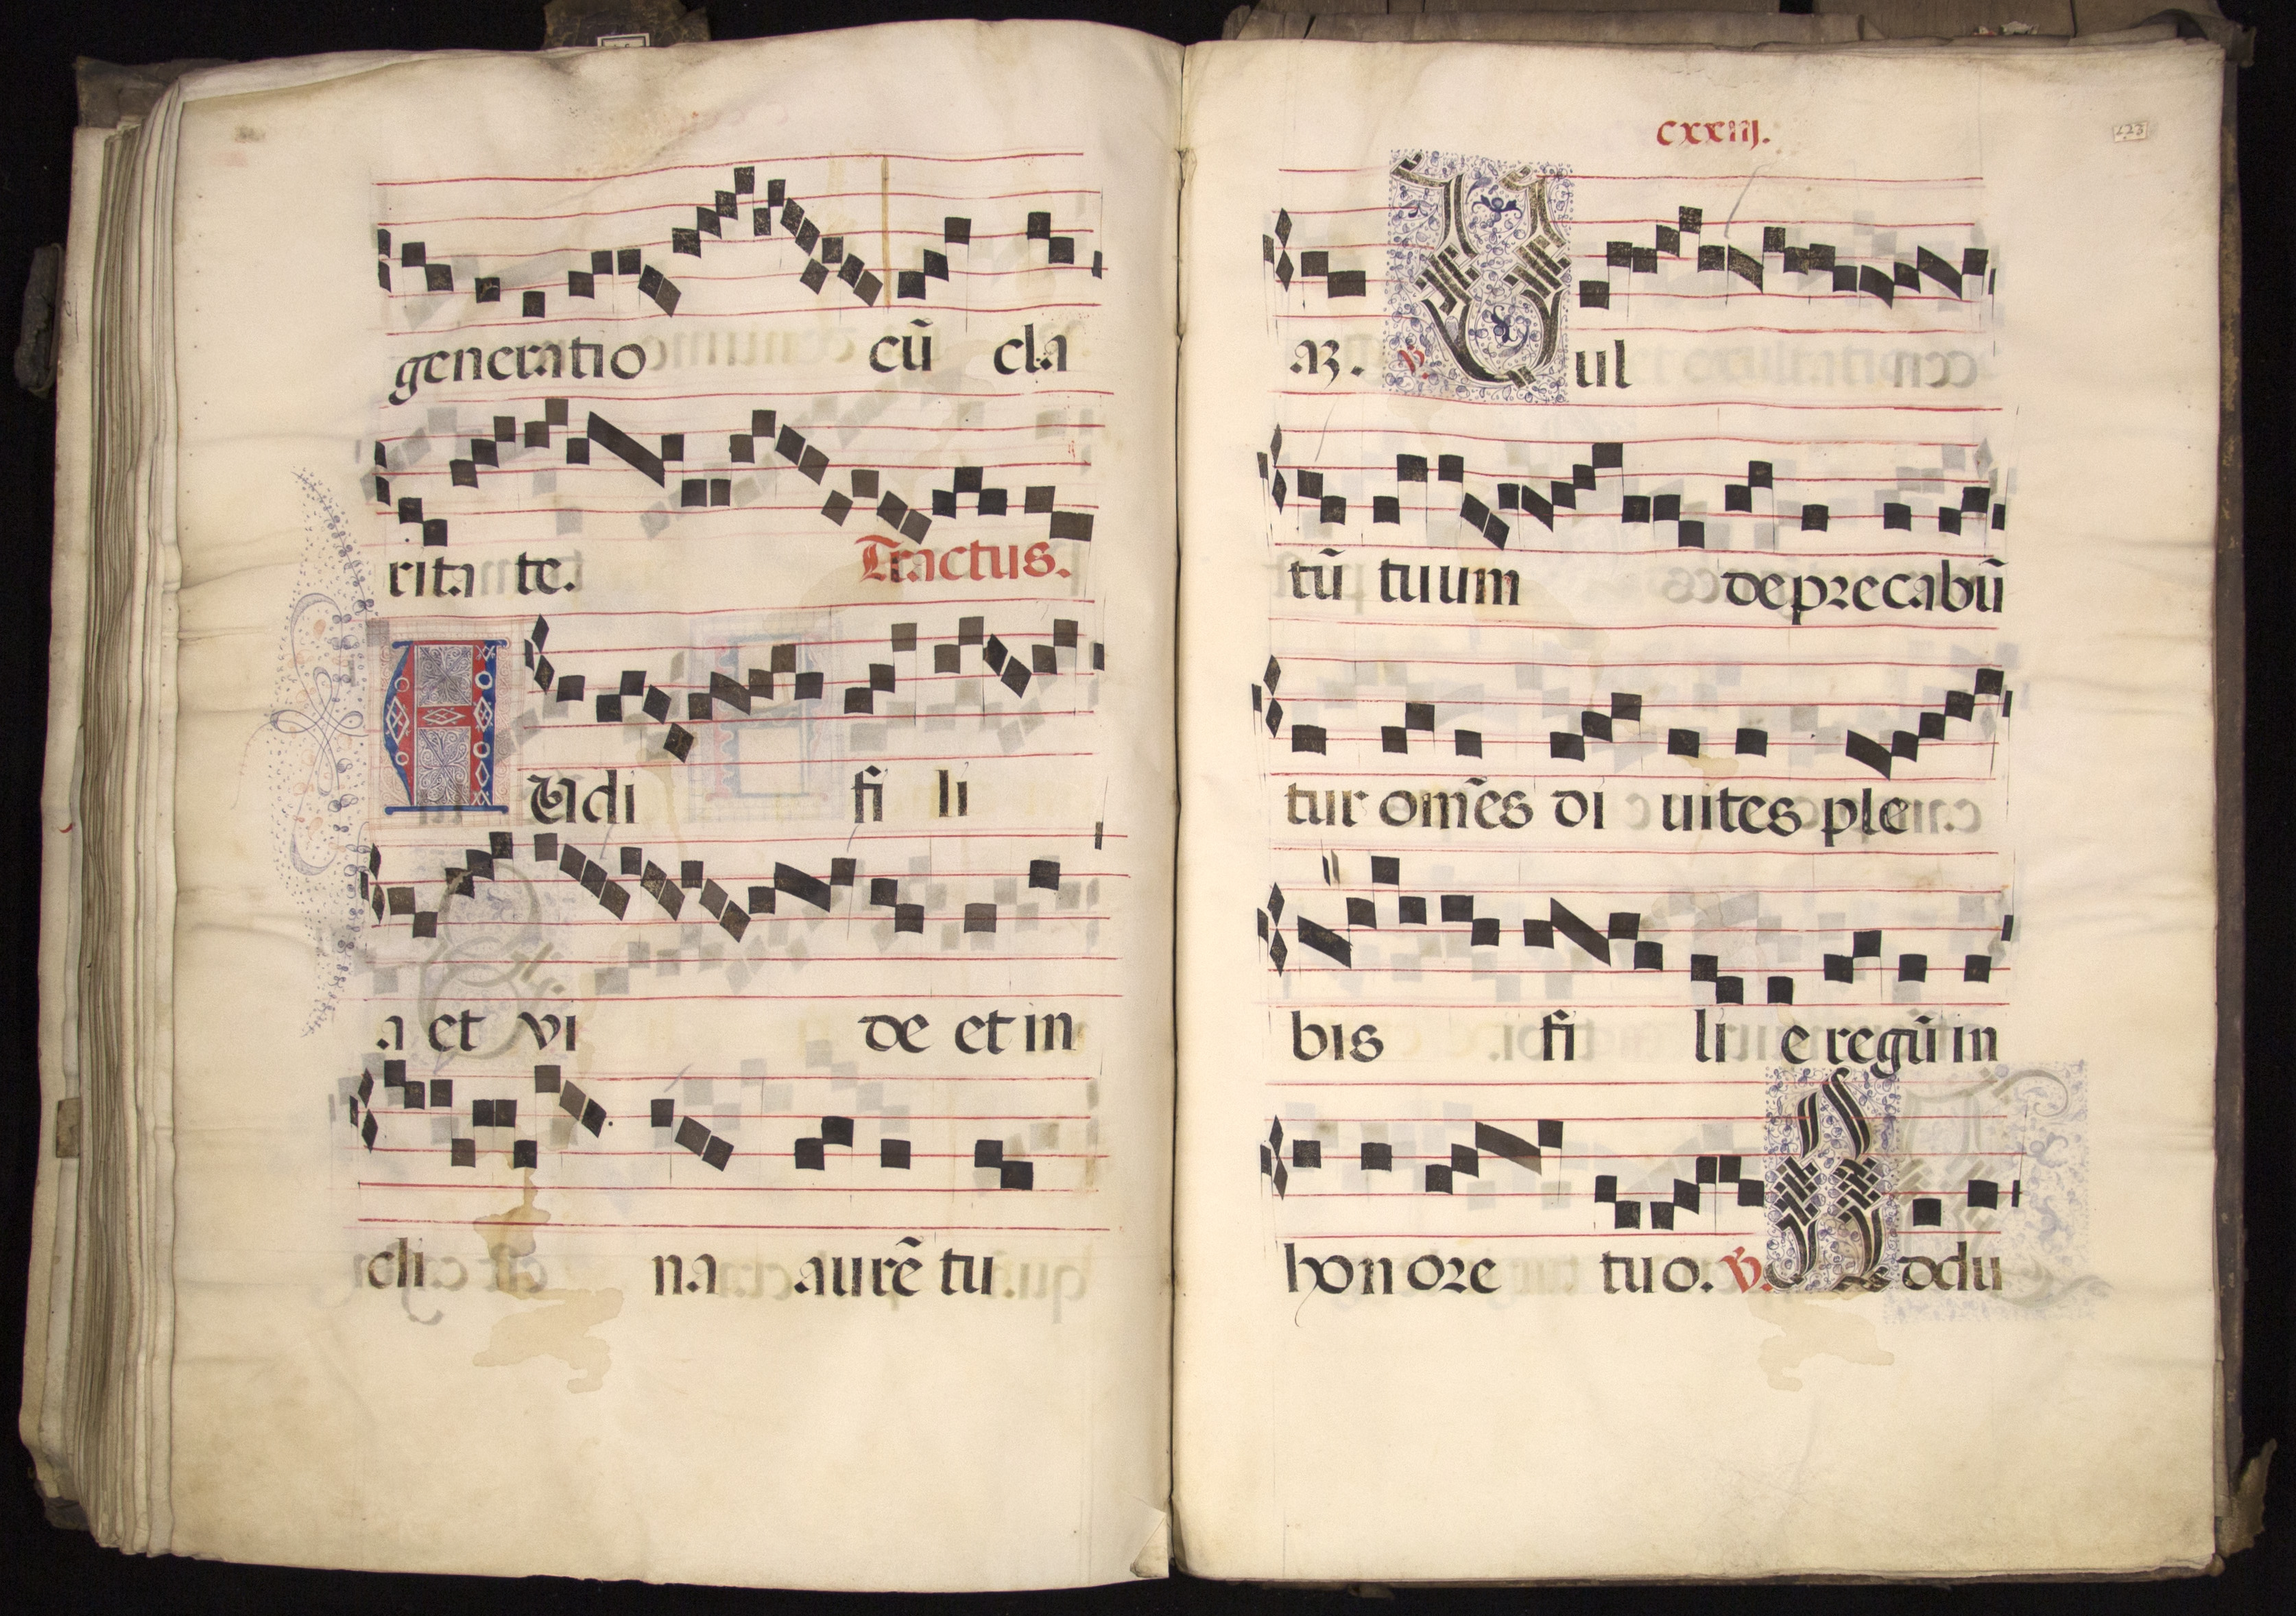 generatio cū cla
rita te. Tractus.
Audi fi li
a et vi de et in
cli na aurē tu
cxxiij.
123
aȝ. ℣. Uul
tū tuum deprecabū
tur om̄es di uites ple
bis fi li e regū in
honore tuo. ℣. Addu